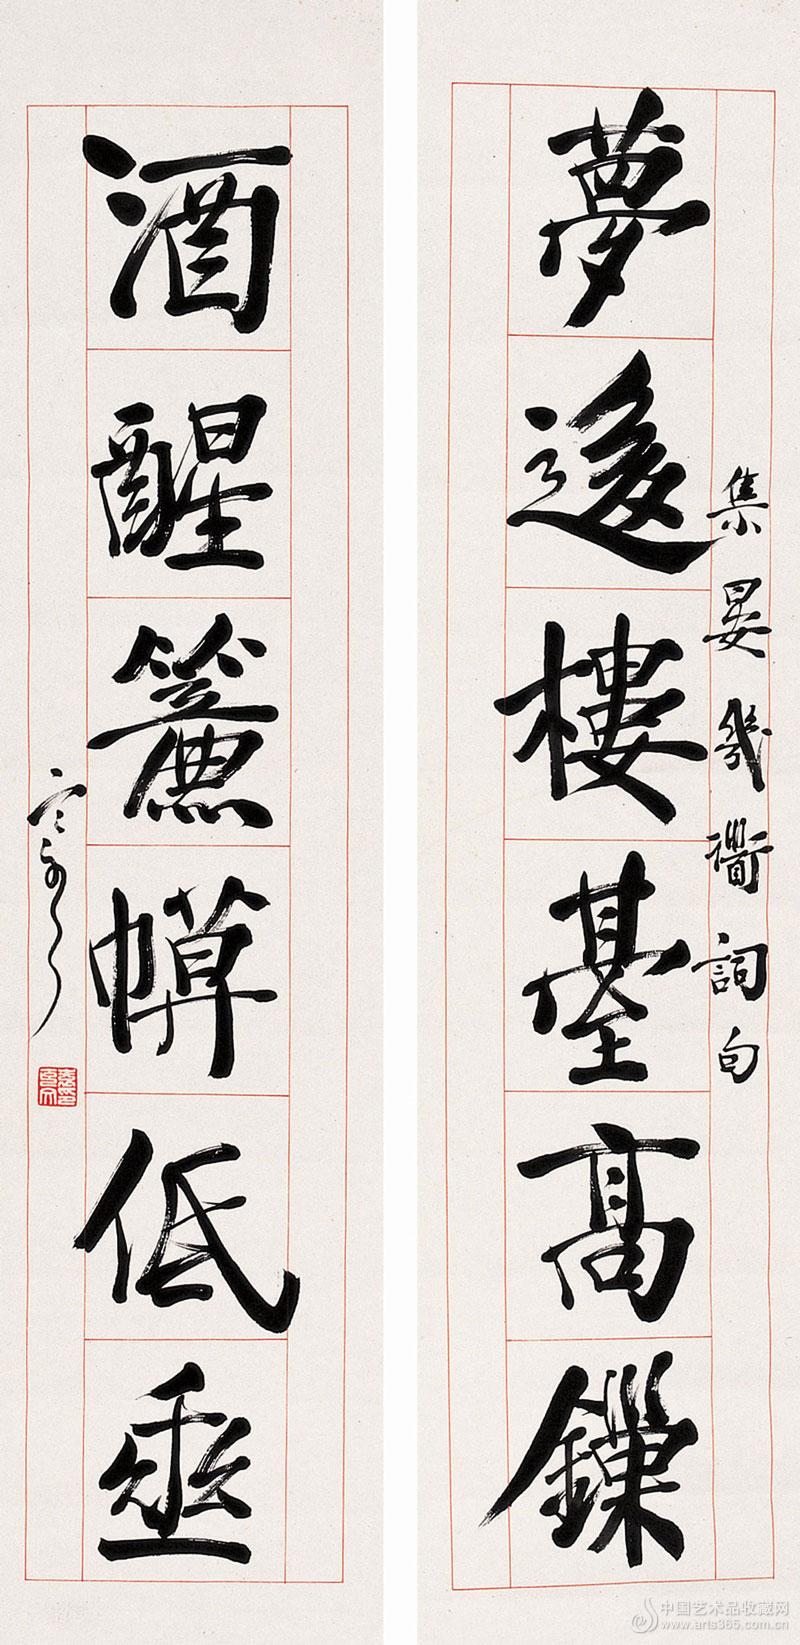 夢後樓臺高鏁
集晏幾衟詞句
酒醒簾幙低垂
中国艺术品收藏网
www.arts365.com.cn